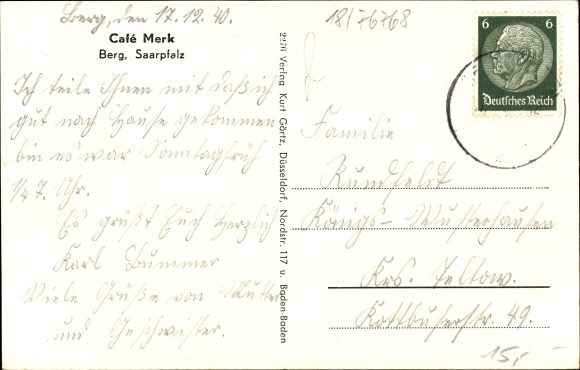 Berg, den 17.12.40.
18/76768
Café Merk
Berg, Saarpfalz
Ich teile Ihnen mit daß ich
gut nach Hause gekommen
bin es war Sonntagfrüh
1/4 7. Uhr.
Es grüßt Euch Herzlich
Karl Bummer
Viele Grüße von Mutter
und Geschwister.
2276 Verlag Kurt Görtz, Düsseldorf, Nordstr. 117 u. Baden-Baden
6 6
Deutsches Reich
Familie
Rundfeldt
Königs-Wusterhausen
Krs. Teltow.
Kottbuserstr. 49.
15,-